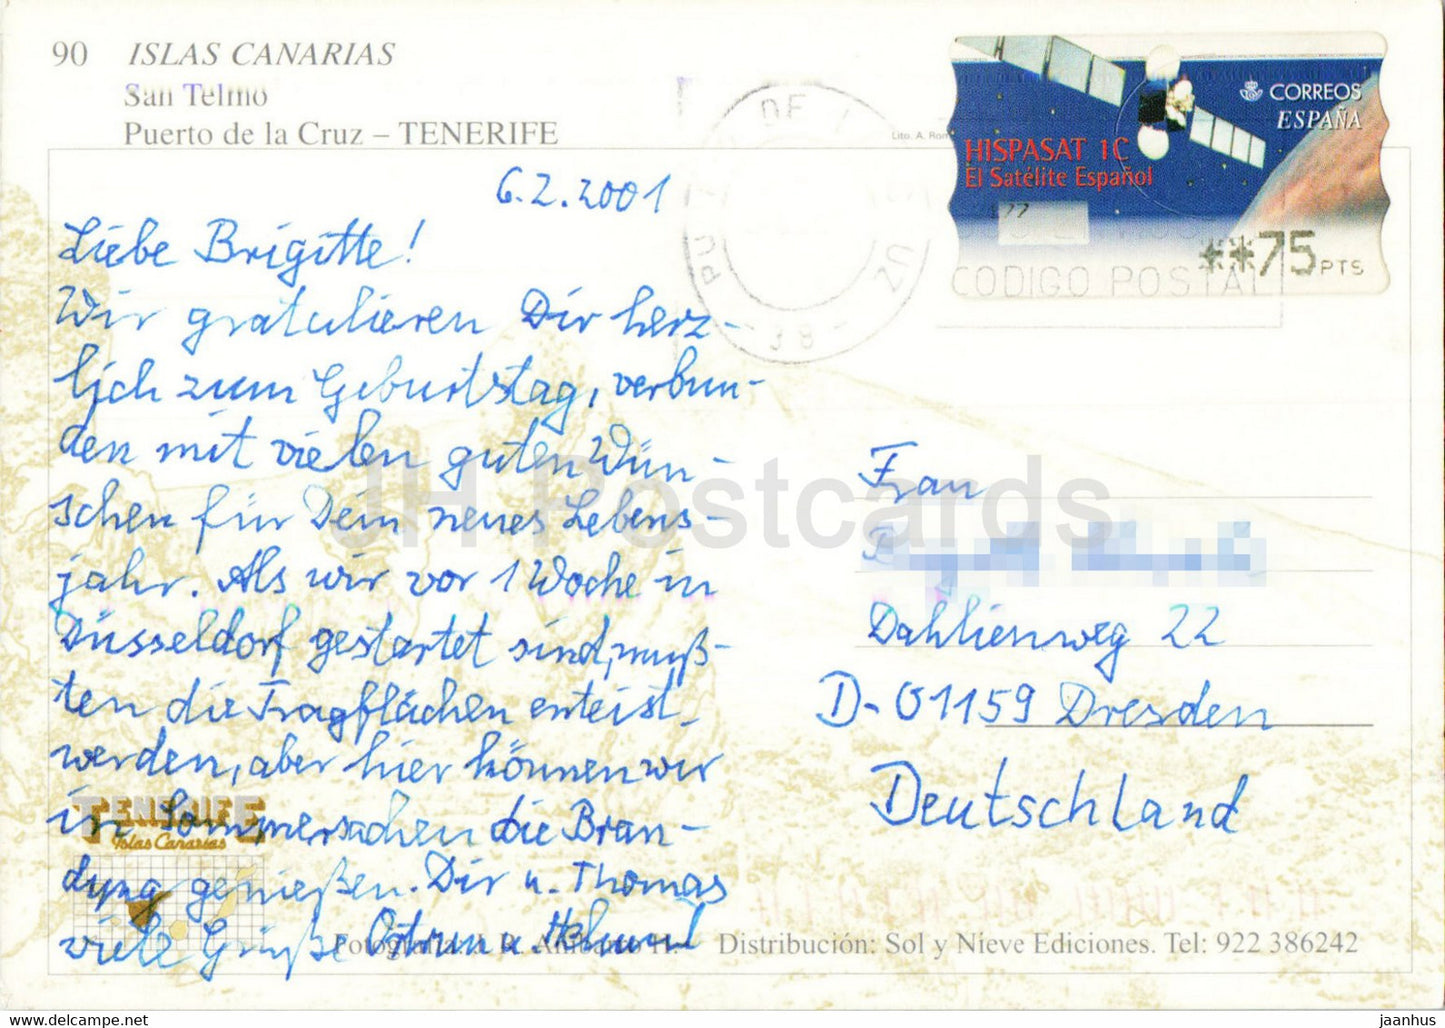 90 ISLAS CANARIAS
San Telmo
Puerto de la Cruz – TENERIFE
Lito. A. Rom
CORREOS
ESPAÑA
HISPASAT 1C
El Satélite Español
**75 PTS
CODIGO POSTAL
- 38 -
6.2.2001
Liebe Brigitte!
Wir gratulieren Dir herz-
lich zum Geburtstag, verbun-
den mit vielen guten Wün-
schen für Dein neues Lebens-
jahr. Als wir vor 1 Woche in
Düsseldorf gestartet sind, muß-
ten die Tragflächen enteist
werden, aber hier können wir
in Sommersachen die Bran-
dung genießen. Dir u. Thomas
viele Grüße
Frau
Dahlienweg 22
D-01159 Dresden
Deutschland
TENERIFE
Islas Canarias
Distribución: Sol y Nieve Ediciones. Tel: 922 386242
JH Postcards
jaanhus @ delcampe.net